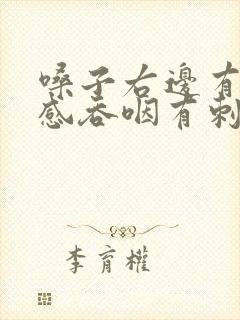 嗓子右邊有
感吞咽有刺
李育權